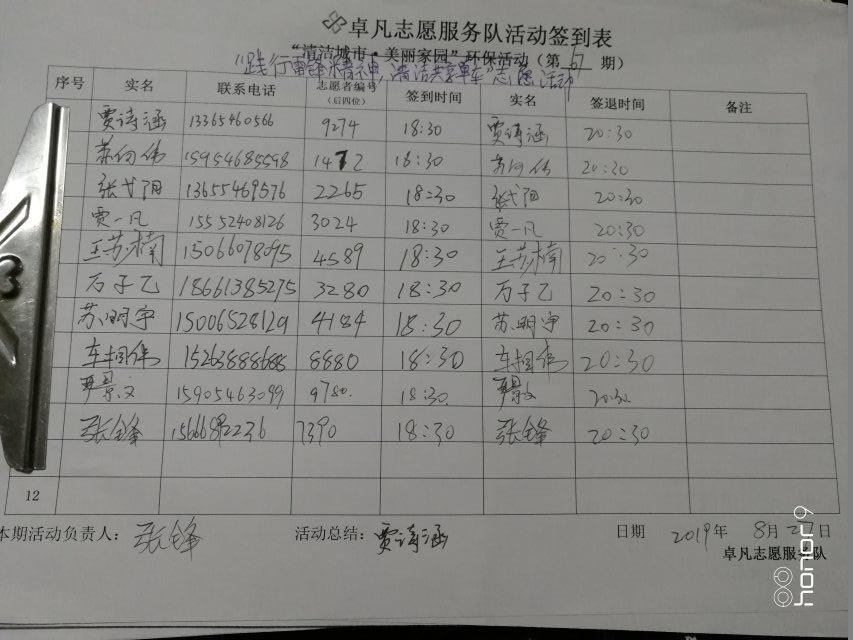 卓凡志愿服务队活动签到表
"清洁城市·美丽家园"环保活动（第61期）
"践行雷锋精神，清洁共享单车"志愿活动
序号 实名 联系电话 志愿者编号（后四位） 签到时间 实名 签退时间 备注
贾诗涵 13365460566 9274 18:30 贾诗涵 20:30
15954685598 1472 18:30 20:30
张弋阳 13655469576 2265 18:30 张弋阳 20:30
贾一凡 15552408126 3024 18:30 贾一凡 20:30
王苏楠 15066078095 4589 18:30 王苏楠 20:30
万子乙 18661385275 3280 18:30 万子乙 20:30
苏明宇 15006528129 4184 18:30 苏明宇 20:30
车相伟 15263888688 8880 18:30 车相伟 20:30
15905463099 9780. 18:30. 20:30.
张锋 15666892236 7390 18:30 张锋 20:30
12
本期活动负责人：张锋 活动总结：贾诗涵 日期 2019年8月27日
卓凡志愿服务队
honor9